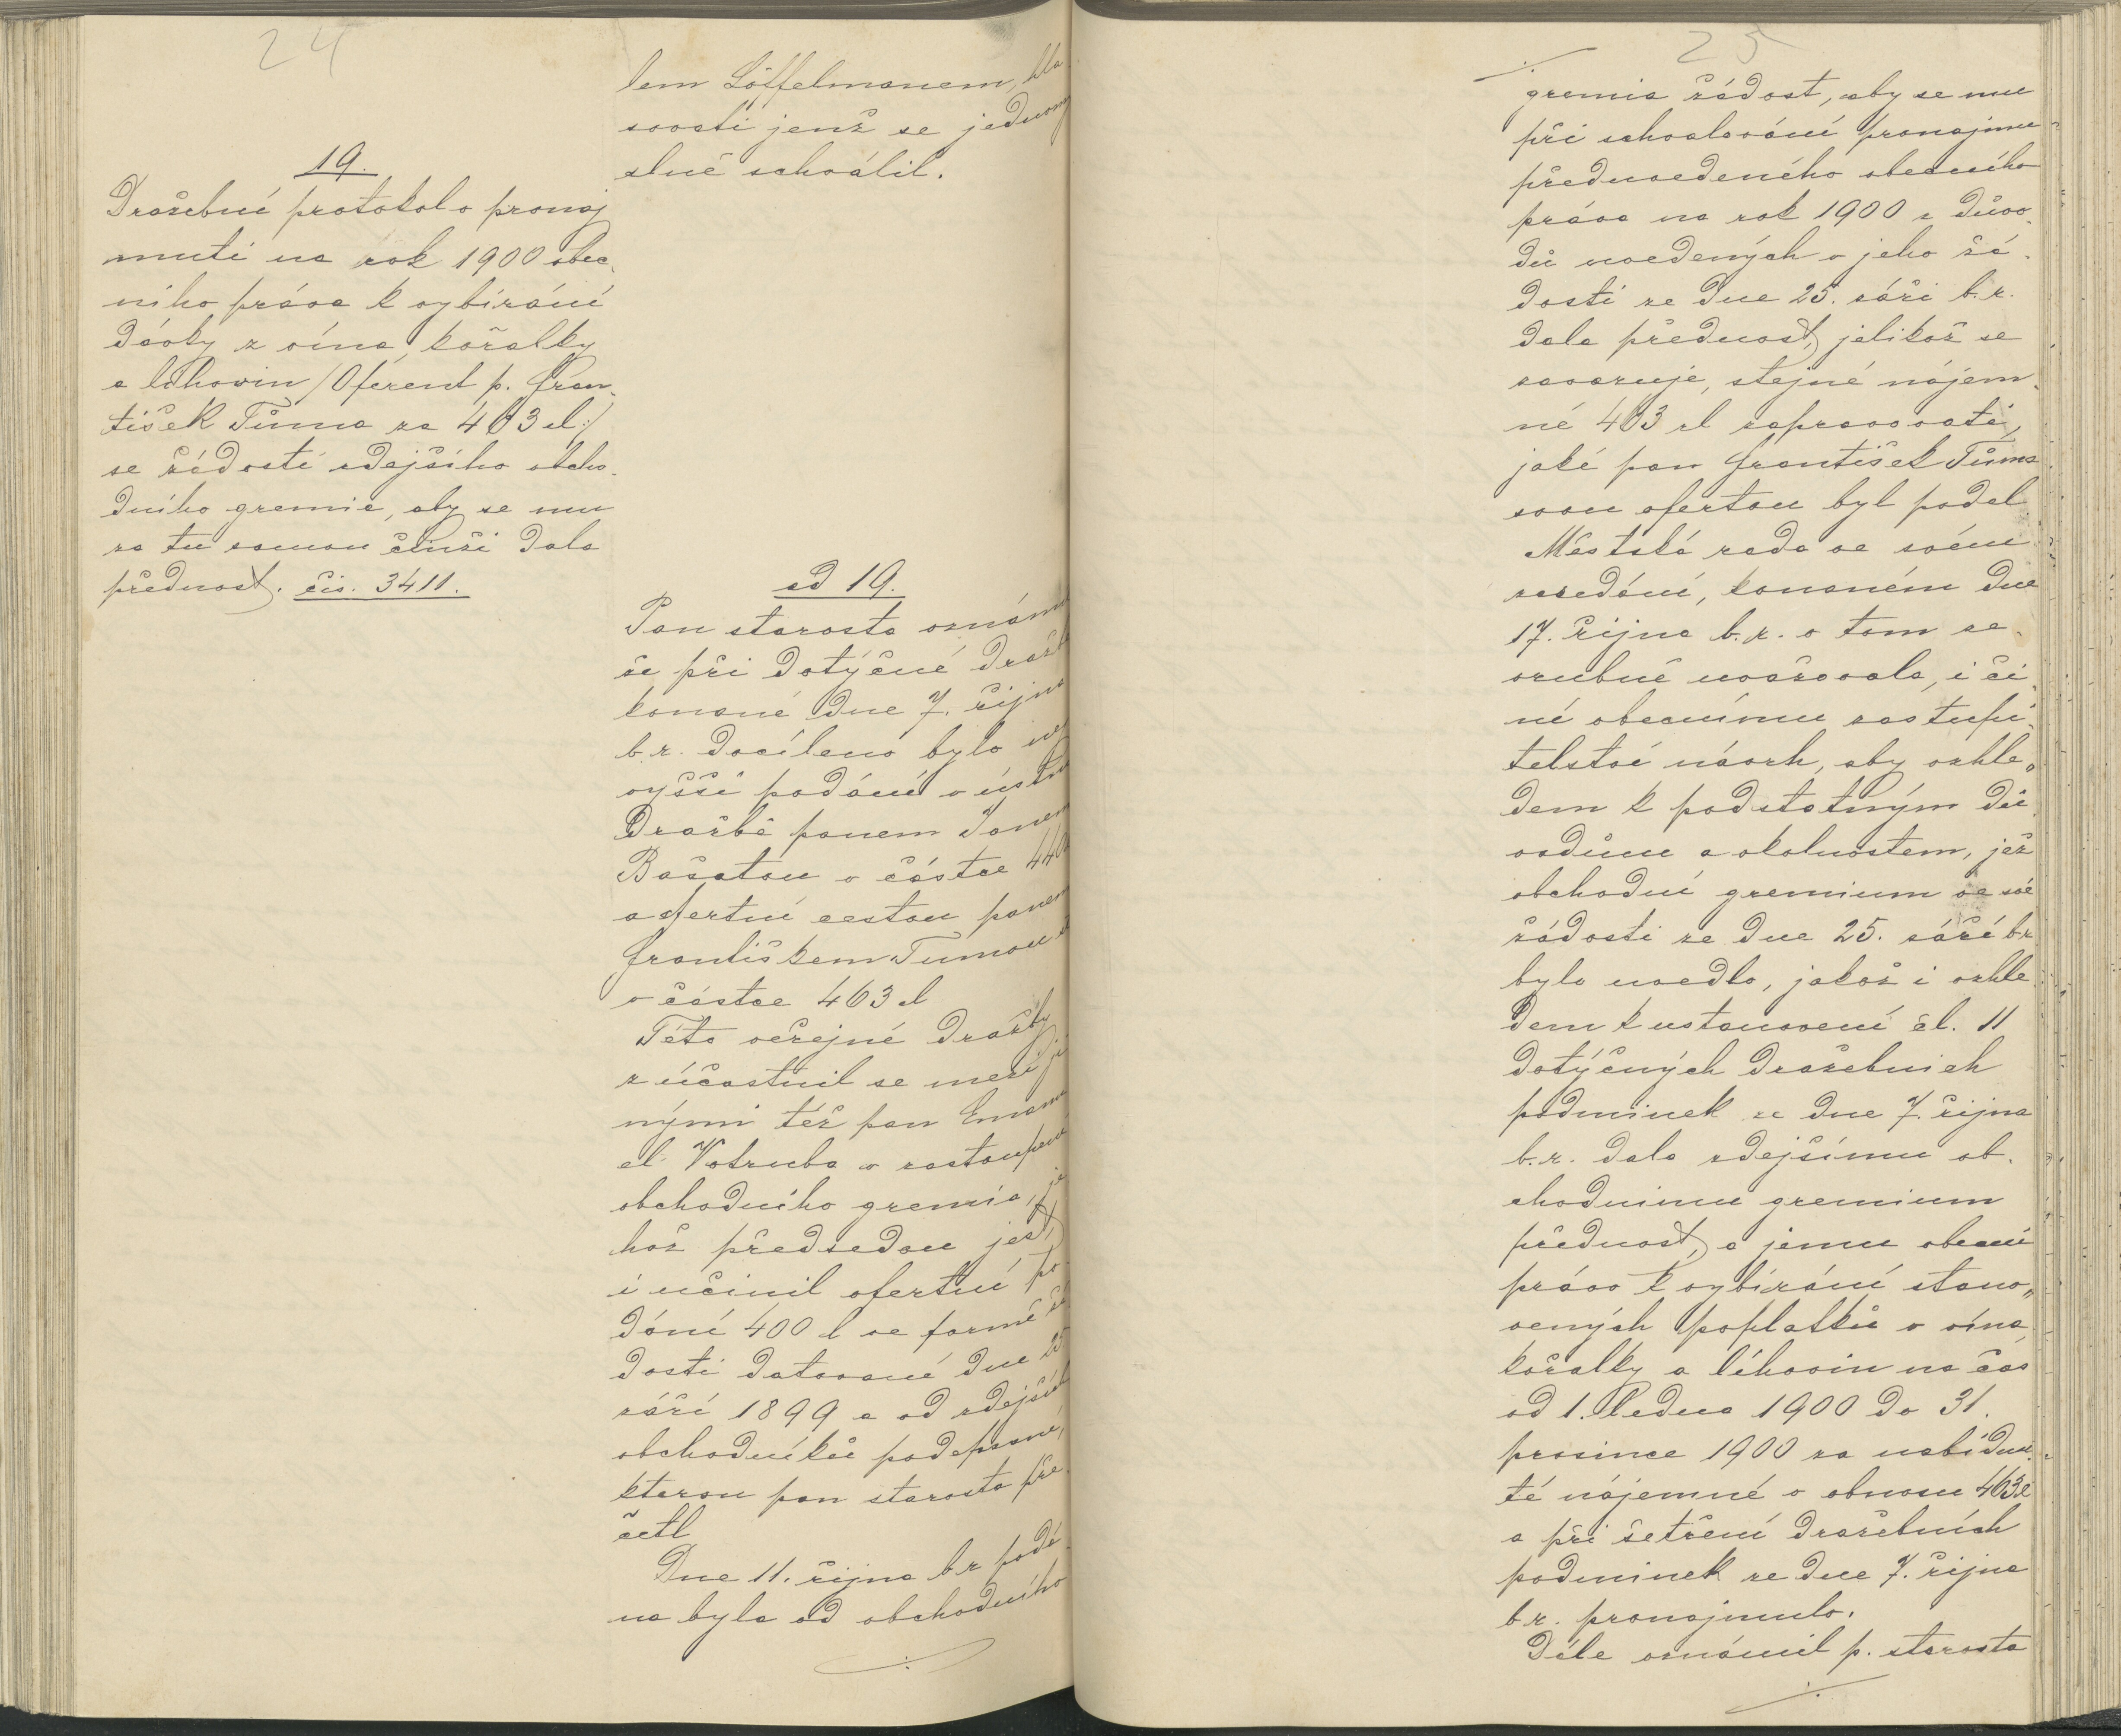 24
19.
Dražební protokol o pronaj
mutí na rok 1900 obec-
ního práva k vybírání
dávky z vína, kořalky
a lihovin /Oferent p. Fran-
tišek Tůma za 463 zl:/
se žádostí zdejšího obcho-
dního gremia, aby se mu
za tu samou činži dala
přednost. čís. 3411.
lem Löffelmanem, hla
sovati jenž se jednomy
slně schválil.
ad 19.
Pan starosta oznám
že při dotýčné draž
konané dne 7. října
b.r. docíleno bylo nej
vyšší podání v ústní
dražbě panem Janem
Bašatou v částce 440
a ofertní cestou panem
Františkem Tumou
v částce 463 zl
Této veřejné dražby
zúčastnil se mezi ji
nými též pan Emanu
el Votruba v zastoupení
obchodního gremia, je
hož předsedou jest,
i učinil ofertní po-
dání 400 zl ve formě žá
dosti datované dne 25
září 1899 a od zdejších
obchodníků podepsané,
kterou pan starosta pře-
četl
Dne 11. října b.r podá-
na byla od obchodního
./.
25
./.
gremia žádost, aby se mu
při schvalování pronajmu-
předuvedeného obecního
práva na rok 1900 z důvo-
dů uvedených v jeho žá-
dosti ze dne 25. září b.r.
dala přednost, jelikož se
zavazuje, stejné nájem-
né 463 zl zapravovati,
jaké pan František Tůma
svou ofertou byl podal.
Městská rada ve svém
zasedání, konaném dne
17. října b.r. o tom ze-
vrubně uvažovala, i či-
ní obecnímu zastupi-
telství návrh, aby vzhle-
dem k podstatným dů-
vodům a okolnostem, jež
obchodní gremium ve své
žádosti ze dne 25. září b.r
bylo uvedlo, jakož i vzhle
dem k ustanovení čl. 11
dotýčných dražebních
podmínek ze dne 7. října
b.r. dala zdejšímu ob-
chodnímu gremium
přednost, a jemu obecní
právo k vybírání stano-
vených poplatků z vína,
kořalky a lihovin na čas
od 1. ledna 1900 do 31.
prosince 1900 za nabídnu-
té nájemné v obnosu 463 zl
a při šetření dražebních
podmínek ze dne 7. října
b.r. pronajmulo.
Dále oznámil p. starosta
./.